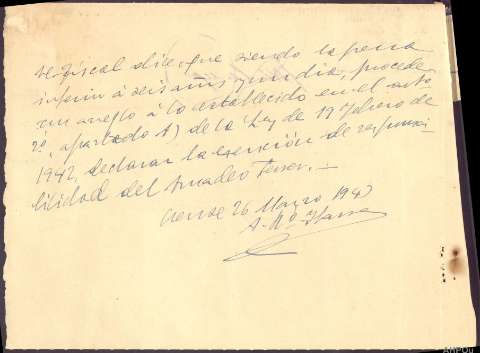 el fiscal dice que siendo la pena
inferior á seis años y un dia, procede
con arreglo á lo establecido en el arto
2º, apartado A) de la Ley de 19 febrero de
1942, declarar la exención de responsa-
bilidad del Amadeo Ferrer.-
Orense 26 Marzo 1943
A. Mº
AHPOu